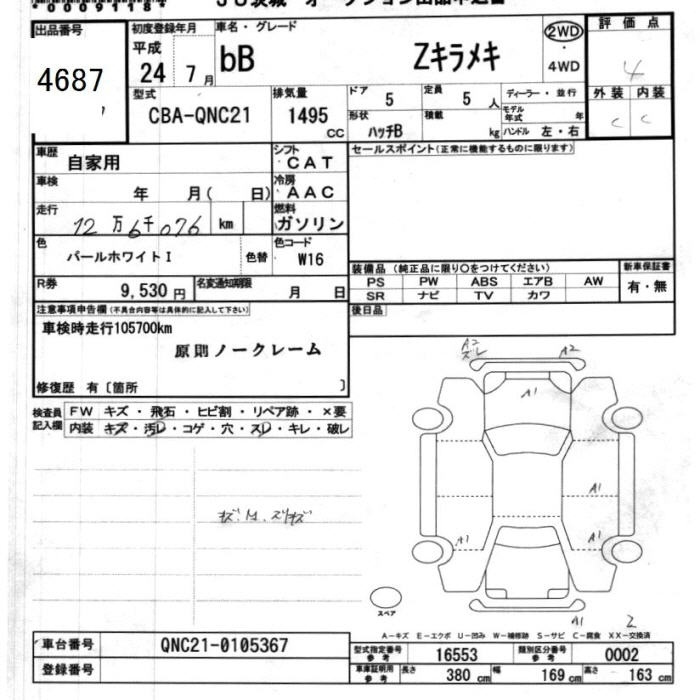 *00091184*
JU茨城 オークション出品申込書
出品番号
4687
初度登録年月
平成
24 7月
車名・グレード
bB Zキラメキ
2WD
・
4WD
評価点
4
型式
CBA-QNC21
排気量
1495
CC
ドア
5
定員
5 人
ディーラー・並行
形状
ハッチB
積載
kg
モデル年式 年
ハンドル 左・右
外装 内装
C C
車歴
自家用
シフト
CAT
車検
年 月( 日)
冷房
AAC
走行
12万6千076 km
燃料
ガソリン
色
パールホワイトI
色替
色コード
W16
R券
9,530 円
名変通知期限
月 日
セールスポイント(正常に機能するものに限ります)
装備品 (純正品に限り○をつけてください)
PS PW ABS エアB AW
SR ナビ TV カワ
新車保証書
有・無
後日品
注意事項申告欄(不具合内容等は具体的に記入して下さい)
車検時走行105700km
原則ノークレーム
修復歴 有〔箇所 〕
検査員記入欄
FW キズ・飛石・ヒビ割・リペア跡・×要
内装 キズ・汚レ・コゲ・穴・スレ・キレ・破レ
A2
ズレ
A2
A1
A1
A1
A1
A1
スペア
A-キズ E-エクボ U-凹み W-補修跡 S-サビ C-腐食 XX-交換済
車台番号
QNC21-0105367
登録番号
型式指定番号
参考
16553
類別区分番号
参考
0002
車庫証明用
参考
長さ
380 cm
幅
169 cm
高さ
163 cm